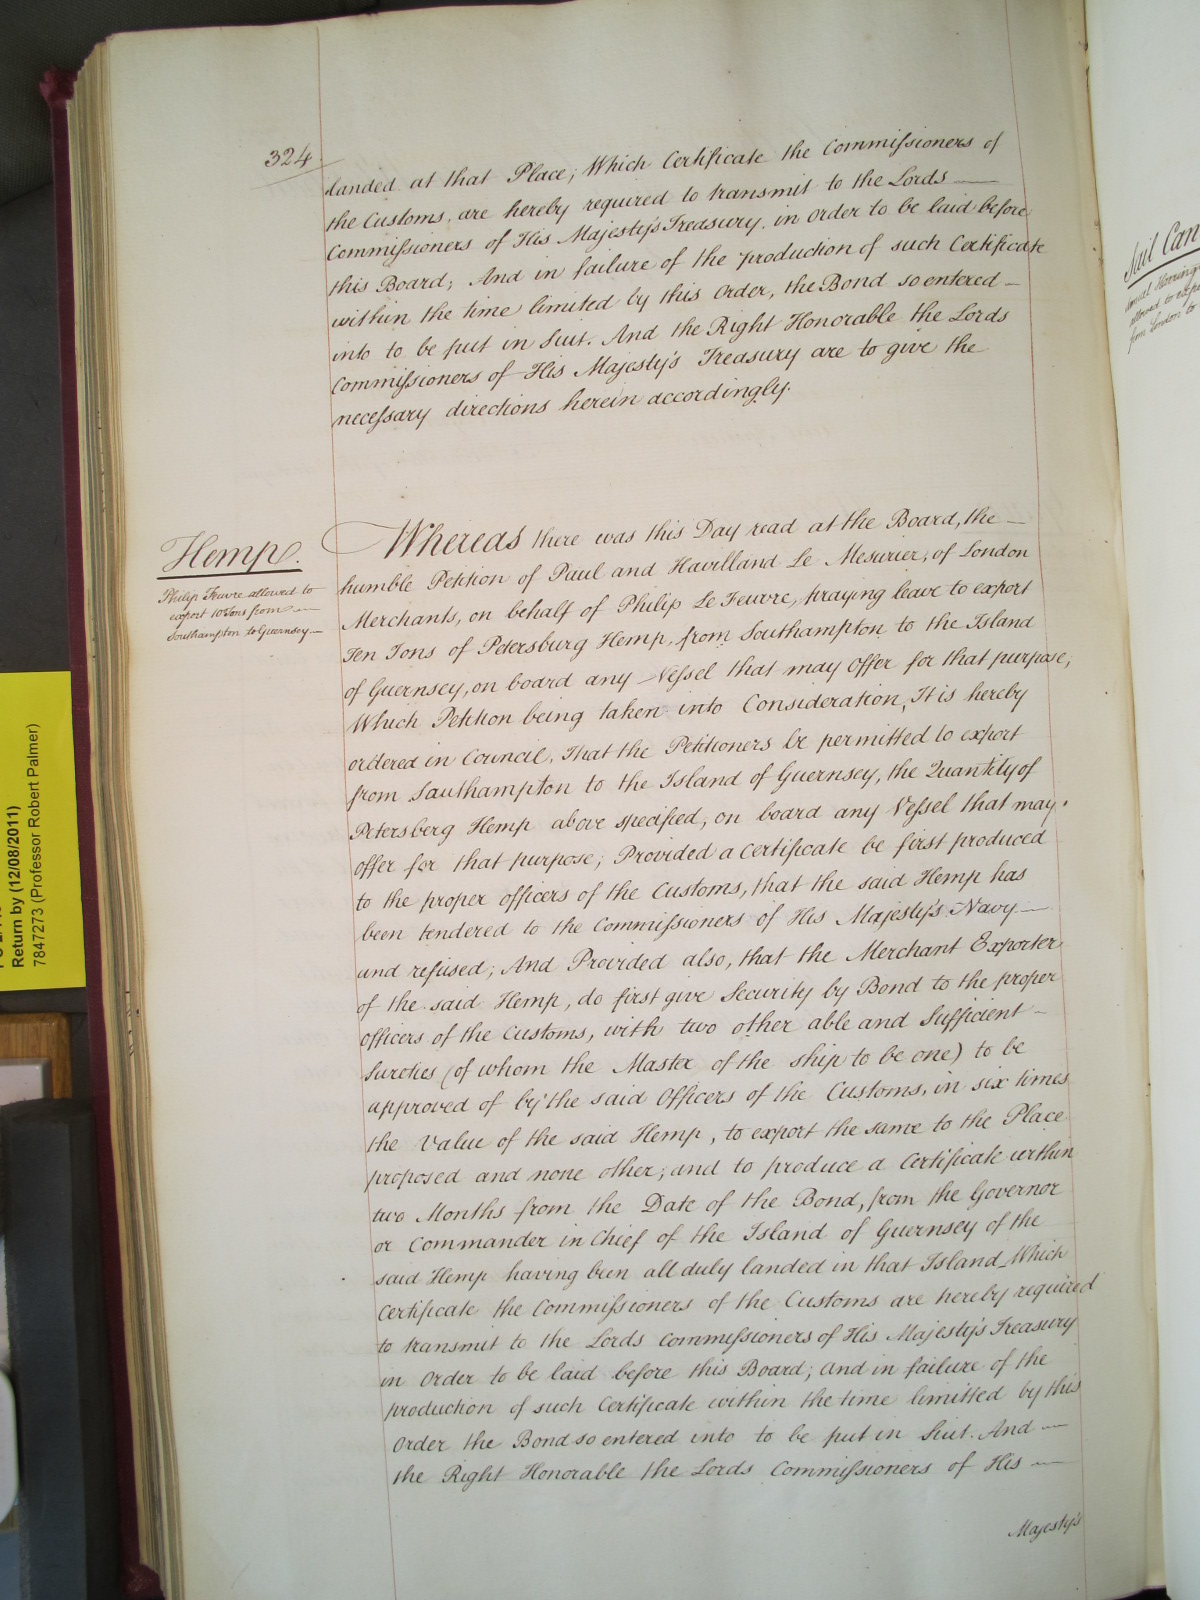 324
landed at that Place; Which Certificate the Commissioners of
the Customs, are hereby required to transmit to the Lords
Commissioners of His Majesty's Treasury, in order to be laid before
this Board; And in failure of the production of such Certificate
within the time limited by this Order, the Bond so entered
into to be put in Suit. And the Right Honorable the Lords
Commissioners of His Majesty's Treasury are to give the
necessary directions herein accordingly.
Hemp.
Philip Feuvre allowed to
export 10 Tons from
Southampton to Guernsey
Whereas there was this Day read at the Board, the
humble Petition of Paul and Havilland Le Mesurier, of London
Merchants, on behalf of Philip Le Feuvre, praying leave to export
Ten Tons of Petersburg Hemp, from Southampton to the Island
of Guernsey, on board any Vessel that may Offer for that purpose;
Which Petition being taken into Consideration, It is hereby
ordered in Council, That the Petitioners be permitted to export
from Southampton to the Island of Guernsey, the Quantity of
Petersberg Hemp above specified, on board any Vessel that may
offer for that purpose; Provided a Certificate be first produced
to the proper officers of the Customs, that the said Hemp has
been tendered to the Commissioners of His Majesty's Navy
and refused; And Provided also, that the Merchant Exporter
of the said Hemp, do first give Security by Bond to the proper
officers of the Customs, with two other able and Sufficient
Sureties (of whom the Master of the ship to be one) to be
approved of by the said Officers of the Customs, in six times
the Value of the said Hemp, to export the same to the Place
proposed and none other; and to produce a Certificate within
two Months from the Date of the Bond, from the Governor
or Commander in Chief of the Island of Guernsey of the
said Hemp having been all duly landed in that Island Which
Certificate the Commissioners of the Customs are hereby required
to transmit to the Lords Commissioners of His Majesty's Treasury
in Order to be laid before this Board; And in failure of the
production of such Certificate within the time limitted by this
Order the Bond so entered into to be put in Suit. And
the Right Honorable the Lords Commissioners of His
Majesty's
Return by (12/08/2011)
7847273 (Professor Robert Palmer)
Sail Can
allowed to
from London to